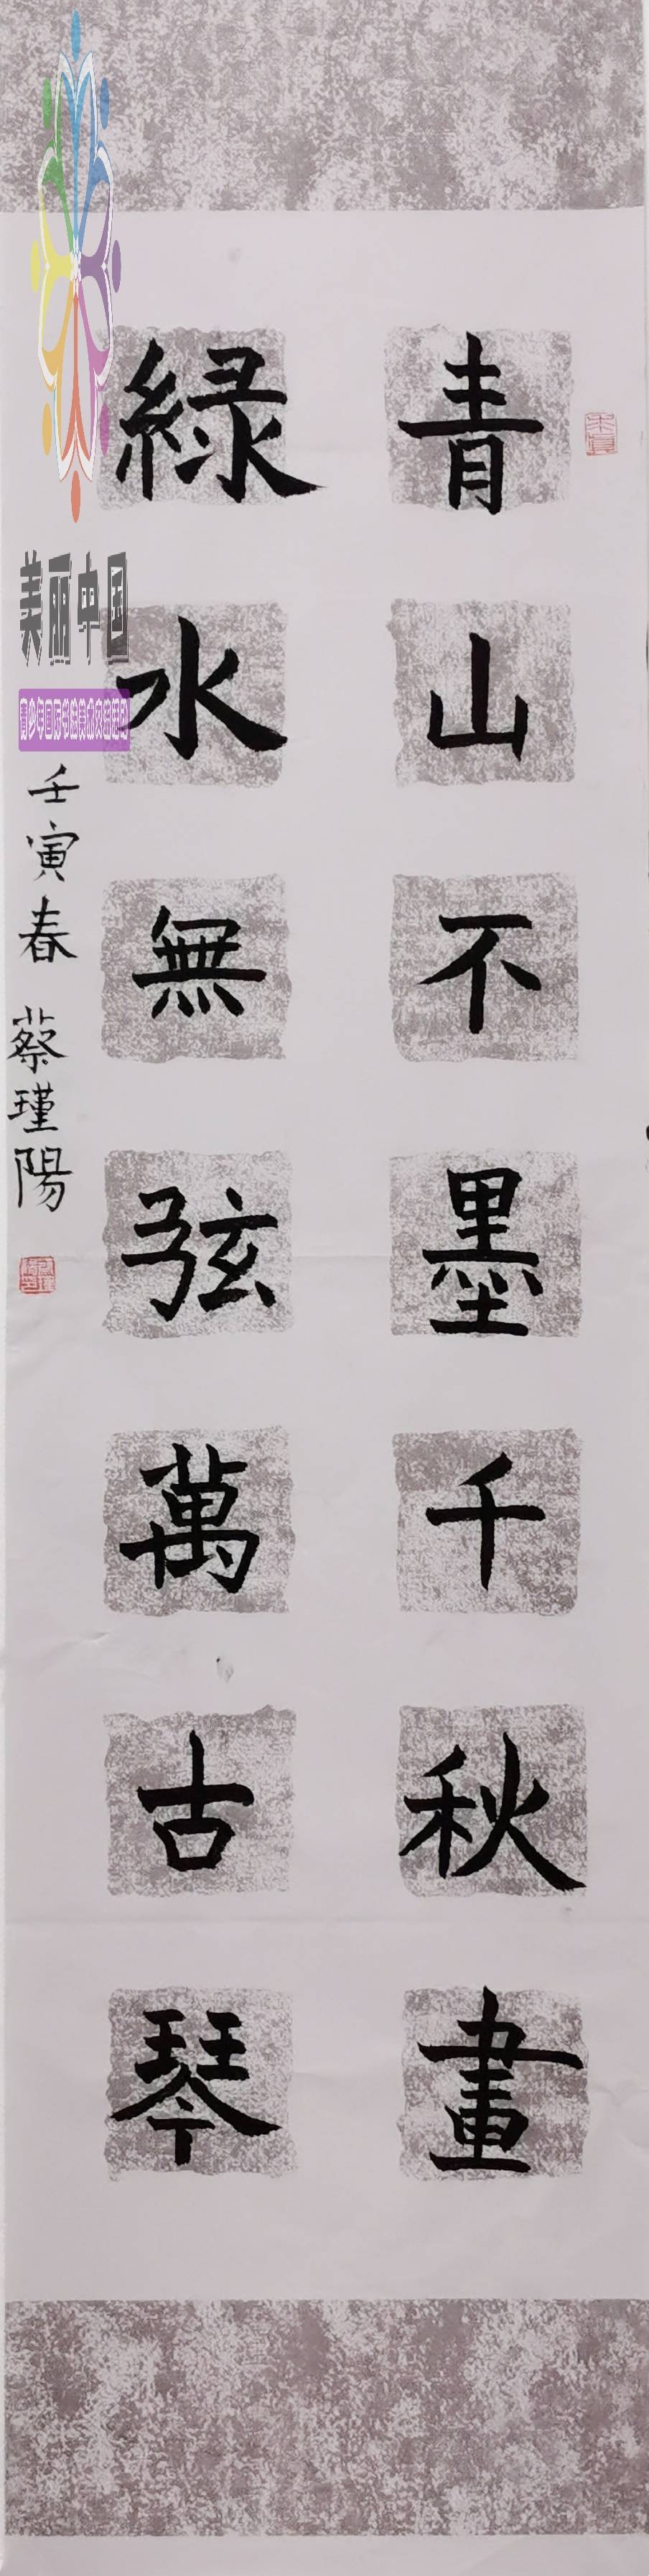 青山不墨千秋畫
綠水無弦萬古琴
壬寅春 蔡瑾陽
美丽中国